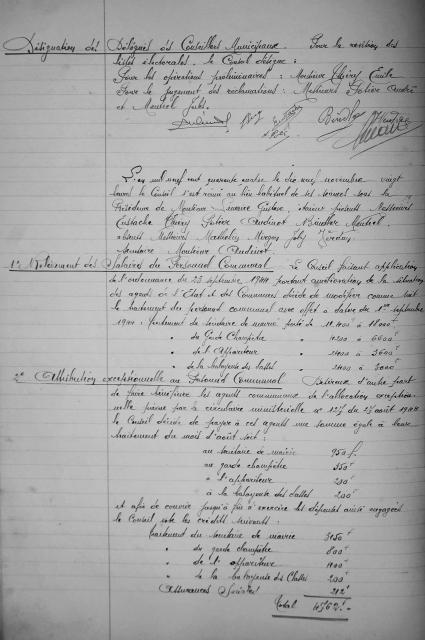 Désignation des Délégués des Conseillers Municipaux. Pour la revision des
listes électorales. le Conseil désigne :
Pour les opérations préliminaires : Monsieur Thiéry Emile
Pour le jugement des réclamations : Messieurs André
et Jules.
L'an mil neuf cent quarante quatre le dix neuf novembre vingt
heures le Conseil s'est réuni au lieu habituel de ses séances sous la
Présidence de Monsieur Gustave étaient présents Messieurs
Eustache Thiéry Audinot
absents Messieurs
Secrétaire Monsieur Audinot
1° Relèvement des Salaires du Personnel Communal Le Conseil faisant application
de l'ordonnance du 23 septembre 1944 portant amélioration de la situation
des agents de l'Etat et des Communes décide de modifier comme suit
le traitement du personnel communal avec effet à dater du 1er septembre
1944 : traitement du secrétaire de mairie porté de à 18000f
" du Garde Champêtre " à 6600f
" de l'Appariteur " à 3600f
" de la balayeuse des classes " à 3000f
2° Attribution exceptionnelle au Personnel Communal Désireux d'autre part
de faire bénéficier les agents communaux de l'allocation exception-
nelle prévue par la circulaire ministérielle n° 127 du 23 août 1944
le Conseil décide de payer à ces agents une somme égale à leur
traitement du mois d'août soit :
au secrétaire de mairie 950 f.
au garde champêtre 350f
à l'appariteur 200f
à la balayeuse des classes 200f
et afin de couvrir jusqu'à fin d'exercice les dépenses ainsi engagées
le Conseil vote les crédits suivants :
traitement du secrétaire de mairie 3150f
" du garde champêtre 800f
" de l'appariteur
" de la balayeuse des Classes 200f
Assurances Sociales 212f
Total